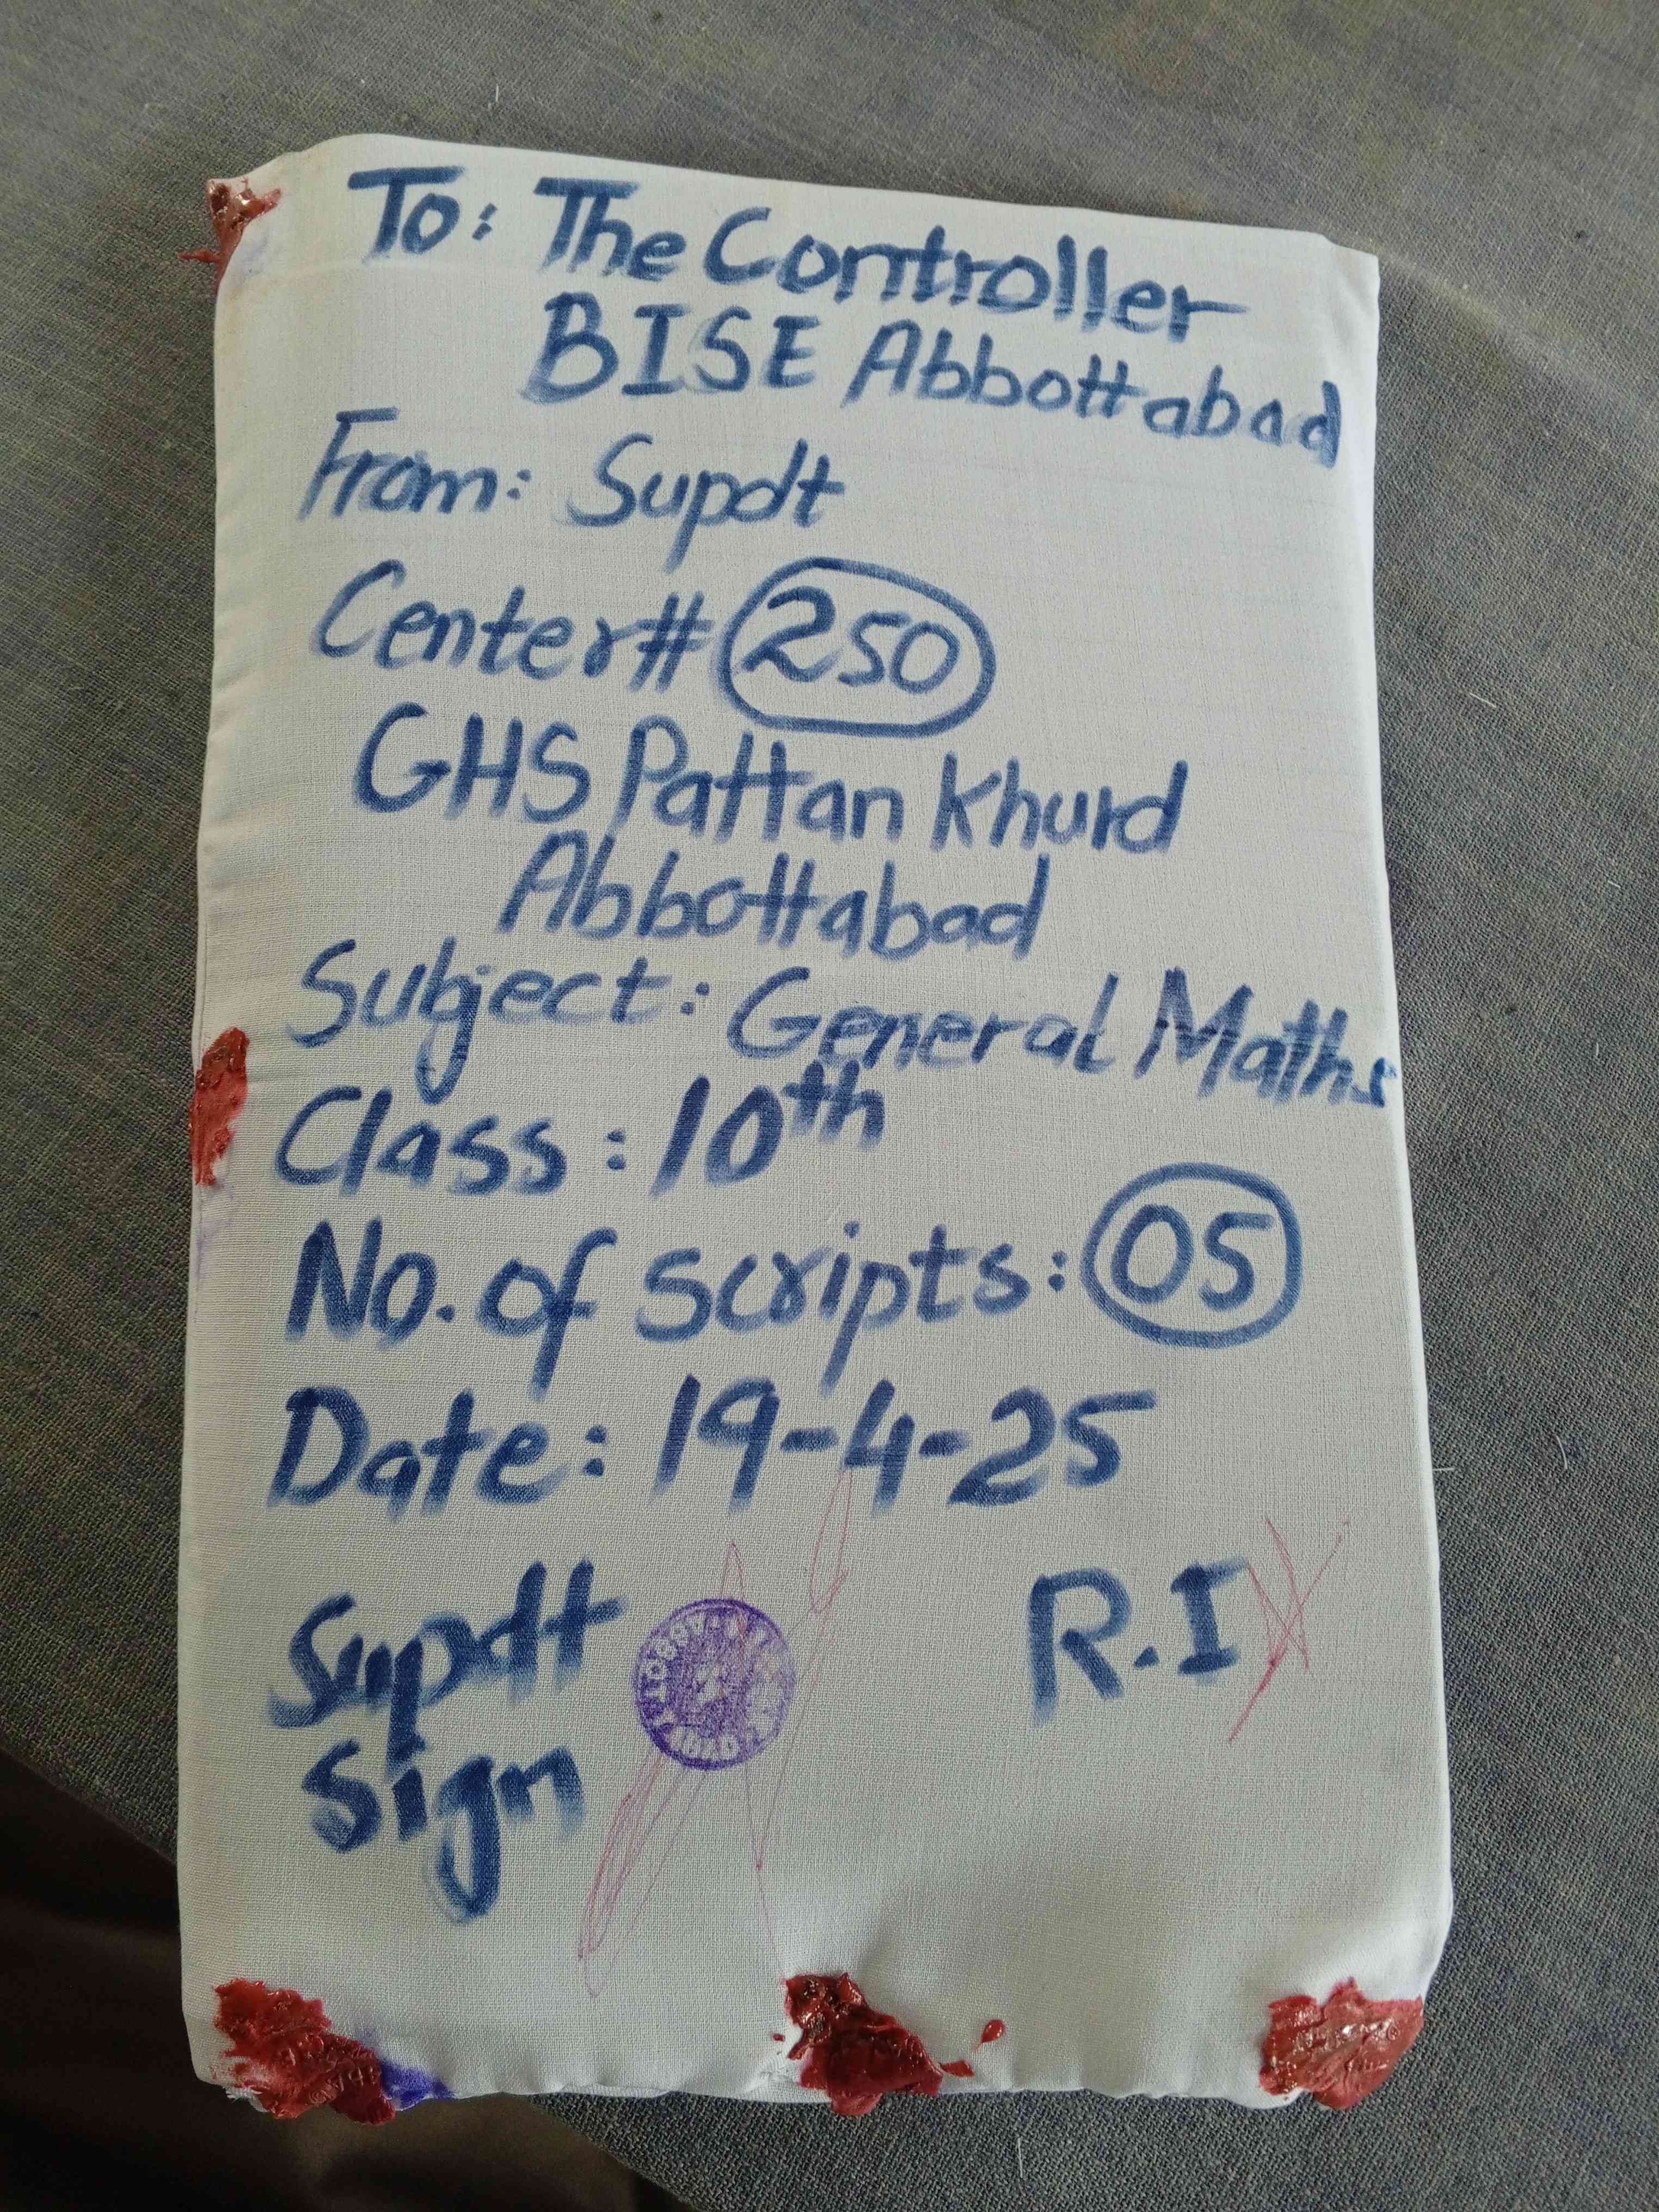 To: The Controller
BISE Abbottabad
From: Supdt
Center# 250
GHS Pattan Khurd
Abbottabad
Subject: General Maths
Class: 10th
No. of scripts: 05
Date: 19-4-25
Supdt
Sign
R.I